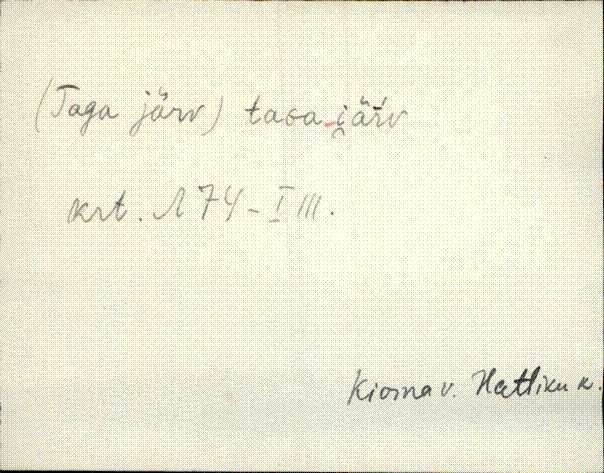 (Taga järv) taGa-i̯ärv
krt. N 74 - I III.
Kioma v. Hatliku k.